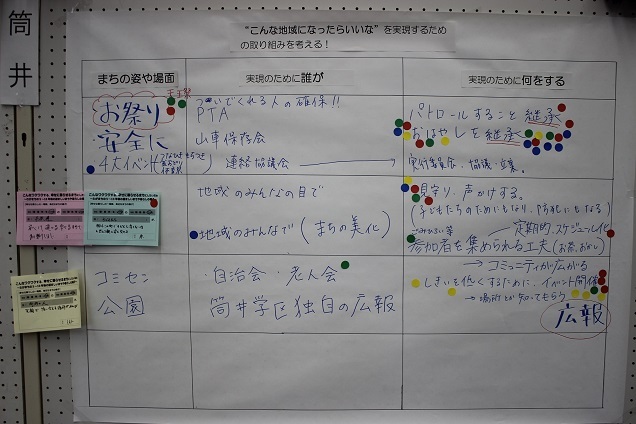 筒井
“こんな地域になったらいいな”を実現するため
の取り組みを考える！
まちの姿や場面
実現のために誰が
実現のために何をする
お祭り
安全に
4大イベント
ついでくれる人の確保!!
PTA
山車保存会
連絡協議会
パトロールすること 継承
おはやしを継承
実行委員会・協議・立案。
地域のみんなの目で
地域のみんなで（まちの美化）
見守り・声かけする。
（子どもたちのためにもなり、防犯にもなる）
定期的、スケジュール化
参加者を集められる工夫
コミセン
公園
・自治会・老人会
筒井学区独自の広報
→コミュニティが広がる
しきいを低くするために、イベント開催
→場所とか知ってもらう
広報